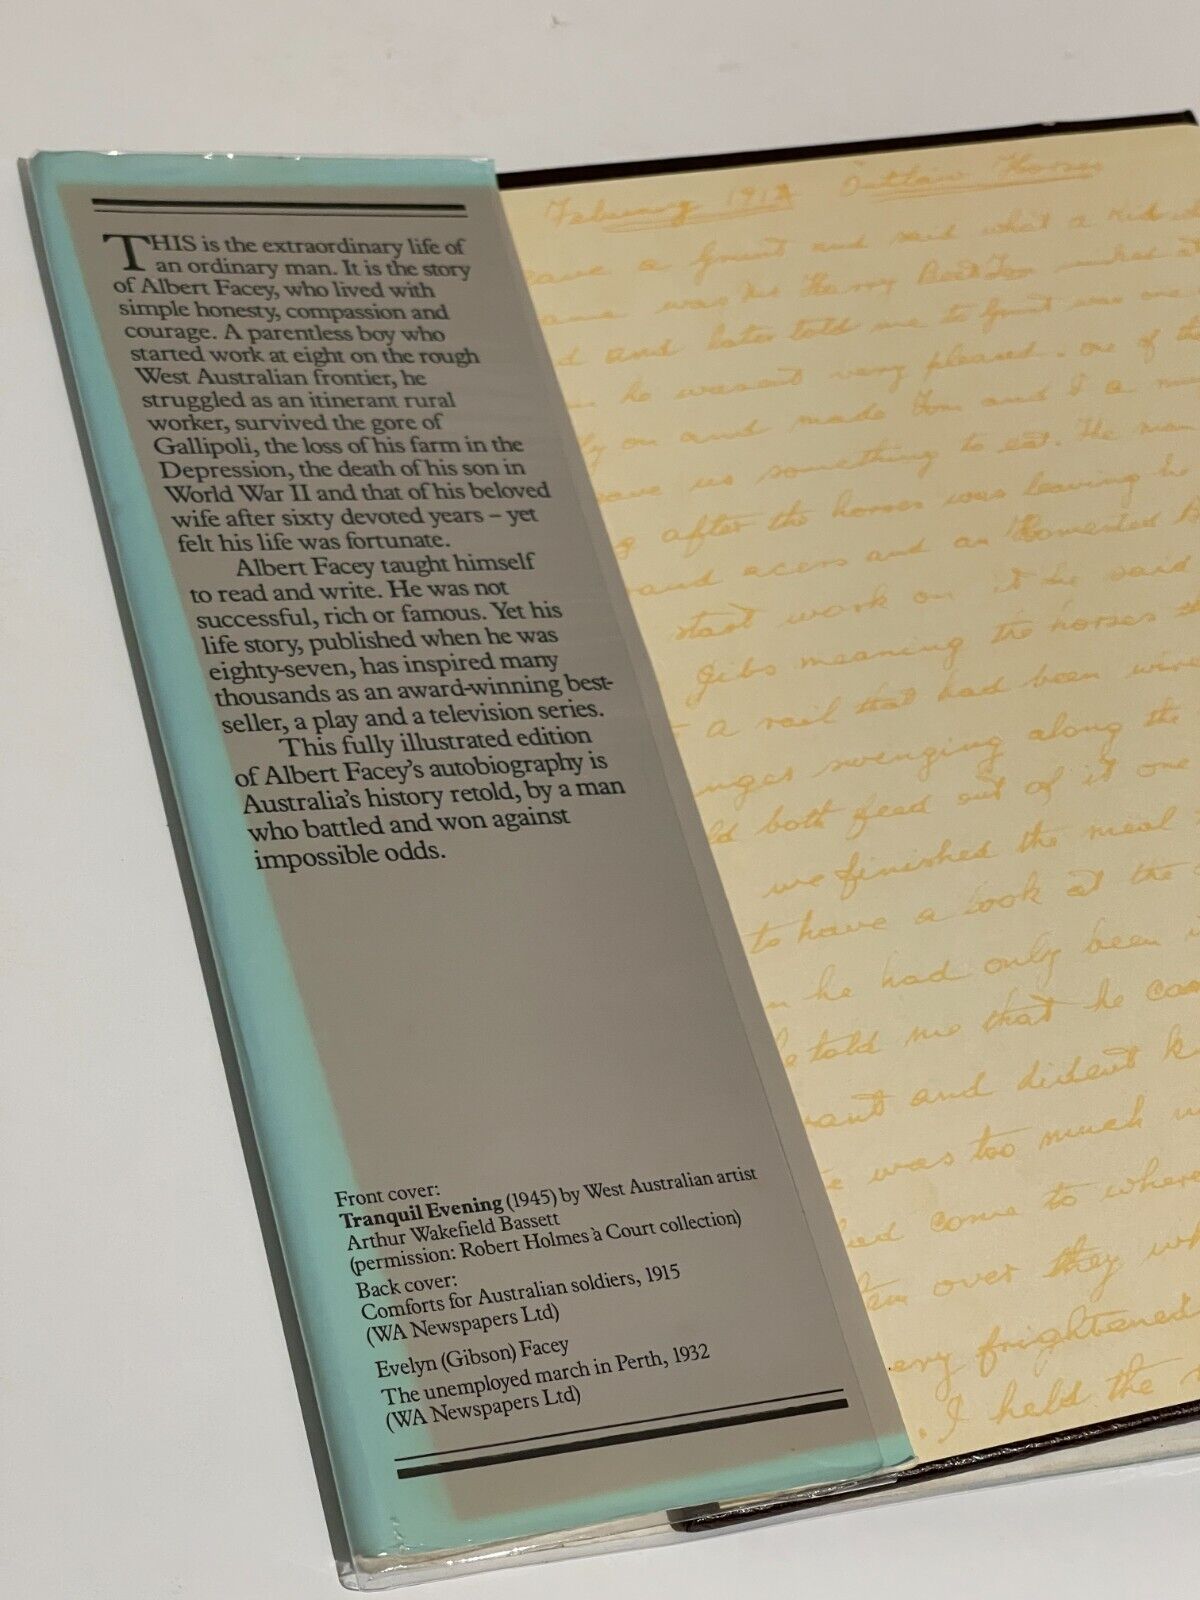 THIS is the extraordinary life of
an ordinary man. It is the story
of Albert Facey, who lived with
simple honesty, compassion and
courage. A parentless boy who
started work at eight on the rough
West Australian frontier, he
struggled as an itinerant rural
worker, survived the gore of
Gallipoli, the loss of his farm in the
Depression, the death of his son in
World War II and that of his beloved
wife after sixty devoted years – yet
felt his life was fortunate.
Albert Facey taught himself
to read and write. He was not
successful, rich or famous. Yet his
life story, published when he was
eighty-seven, has inspired many
thousands as an award-winning best-
seller, a play and a television series.
This fully illustrated edition
of Albert Facey's autobiography is
Australia's history retold, by a man
who battled and won against
impossible odds.
Front cover:
Tranquil Evening (1945) by West Australian artist
Arthur Wakefield Bassett
(permission: Robert Holmes à Court collection)
Back cover:
Comforts for Australian soldiers, 1915
(WA Newspapers Ltd)
Evelyn (Gibson) Facey
The unemployed march in Perth, 1932
(WA Newspapers Ltd)
Outlaw Horses
a Grunt and said what a Kid
was
and later told me to Grunt was one
he wasent very pleased. one of the
on and made Tom and I a
us something to eat. The man
after the horses was leaving he
and acers and an
start work on it he said
Gibs meaning the horses
a rail that had been
swenging along the
both feed out of it one
we finished the meal
to have a look at the
he had only been
told me that he
and dident
was too much
come to where
over they
frightened
. I held the